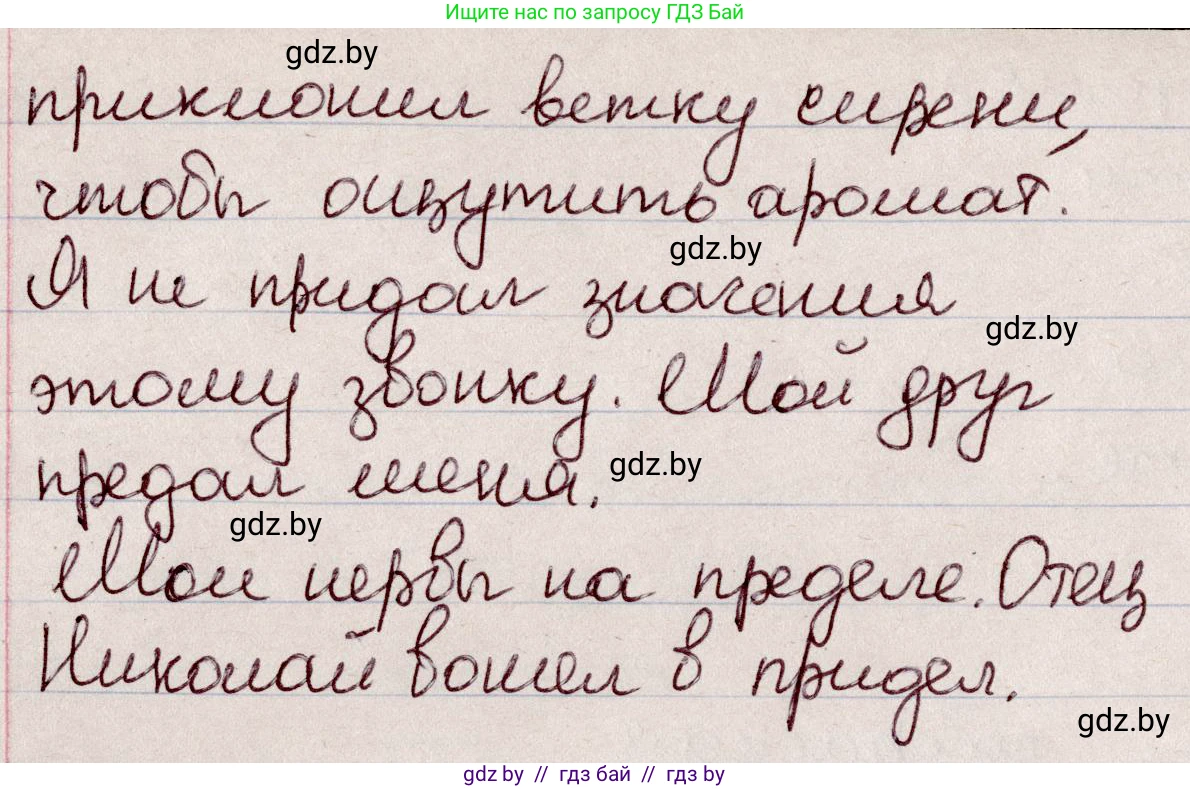 Ищите нас по запросу ГДЗ Бай
gdz.by
приклонил ветку сирени,
чтобы ощутить аромат.
gdz.by
Я не придал значения
gdz.by
этому звонку. Мой друг
предал меня.
gdz.by
gdz.by
Мои нервы на пределе. Отец
Николай вошел в придел.
gdz.by
gdz by // гдз бай // гдз by